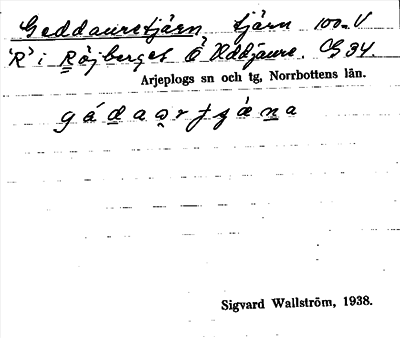 Geddauretjärn, tjärn 100m V
"R" i Röjberget Ö Uddjaure. Cg 34.
Arjeplogs sn och tg, Norrbottens län.
Sigvard Wallström, 1938.